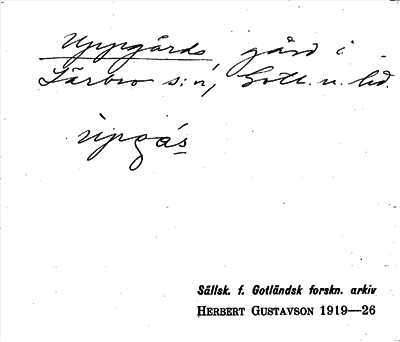 Uppgårds, gård i
Lärbro s:n, Gotl. n. hd.
upgás
Sällsk. f. Gotländsk forskn. arkiv
HERBERT GUSTAVSON 1919—26